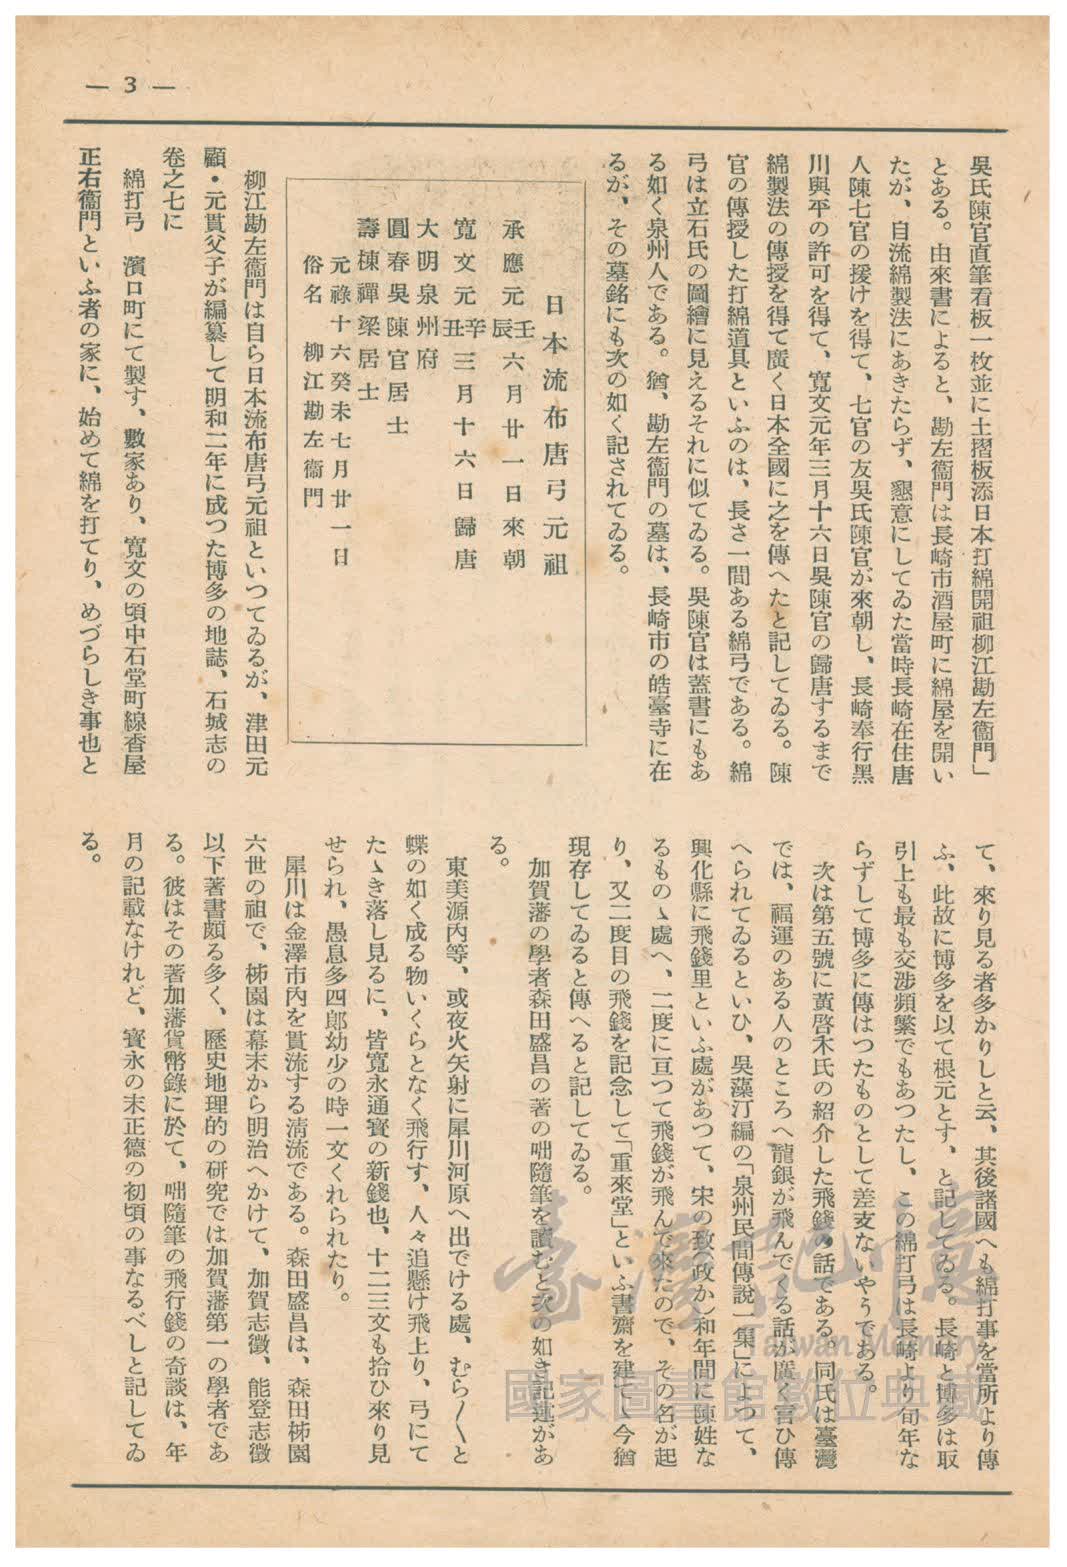 — 3 —
吳氏陳官直筆看板一枚並に土摺板添日本打綿開祖柳江勘左衞門」
とある。由來書によると、勘左衞門は長崎市酒屋町に綿屋を開い
たが、自流綿製法にあきたらず、懇意にしてゐた當時長崎在住唐
人陳七官の援けを得て、七官の友吳氏陳官が來朝し、長崎奉行黑
川與平の許可を得て、寬文元年三月十六日吳陳官の歸唐するまで
綿製法の傳授を得て廣く日本全國に之を傳へたと記してゐる。陳
官の傳授した打綿道具といふのは、長さ一間ある綿弓である。綿
弓は立石氏の圖繪に見えるそれに似てゐる。吳陳官は蓋書にもあ
る如く泉州人である。猶、勘左衞門の墓は、長崎市の皓臺寺に在
るが、その墓銘にも次の如く記されてゐる。
日本流布唐弓元祖
承應元壬辰六月廿一日來朝
寬文元辛丑三月十六日歸唐
大明泉州府
圓春吳陳官居士
壽棟禪梁居士
元祿十六癸未七月廿一日
俗名 柳江勘左衞門
柳江勘左衞門は自ら日本流布唐弓元祖といつてゐるが、津田元
顧・元貫父子が編纂して明和二年に成つた博多の地誌、石城志の
卷之七に
綿打弓 濱口町にて製す、數家あり、寬文の頃中石堂町線香屋
正右衞門といふ者の家に、始めて綿を打てり、めづらしき事也と
て、來り見る者多かりしと云、其後諸國へも綿打事を當所より傳
ふ、此故に博多を以て根元とす、と記してゐる。長崎と博多は取
引上も最も交涉頻繁でもあつたし、この綿打弓は長崎より旬年な
らずして博多に傳はつたものとして差支ないやうである。
次は第五號に黃啓木氏の紹介した飛錢の話である。同氏は臺灣
では、福運のある人のところへ龍銀が飛んでくる話が廣く言ひ傳
へられてゐるといひ、吳藻汀編の「泉州民間傳說一集」によつて、
興化縣に飛錢里といふ處があつて、宋の致(政か)和年間に陳姓な
るものゝ處へ、二度に亘つて飛錢が飛んで來たので、その名が起
り、又二度目の飛錢を記念して「重來堂」といふ書齋を建てゝ今猶
現存してゐると傳へると記してゐる。
加賀藩の學者森田盛昌の著の咄隨筆を讀むと次の如き記述があ
る。
東美源內等、或夜火矢射に犀川河原へ出でける處、むら〱と
蝶の如く成る物いくらとなく飛行す、人々追懸け飛上り、弓にて
たゝき落し見るに、皆寬永通寳の新錢也、十二三文も拾ひ來り見
せられ、愚息多四郎幼少の時一文くれられたり。
犀川は金澤市內を貫流する淸流である。森田盛昌は、森田柿園
六世の祖で、柿園は幕末から明治へかけて、加賀志徵、能登志徵
以下著書頗る多く、歷史地理的の硏究では加賀藩第一の學者であ
る。彼はその著加藩貨幣錄に於て、咄隨筆の飛行錢の奇談は、年
月の記載なけれど、寳永の末正德の初頃の事なるべしと記してゐ
る。
臺灣記憶
Taiwan Memory
國家圖書館數位典藏